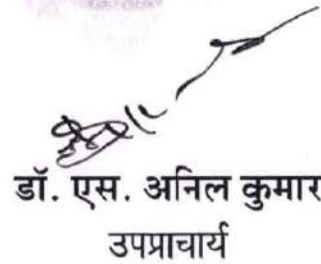 डॉ. एस. अनिल कुमार
उपप्राचार्य